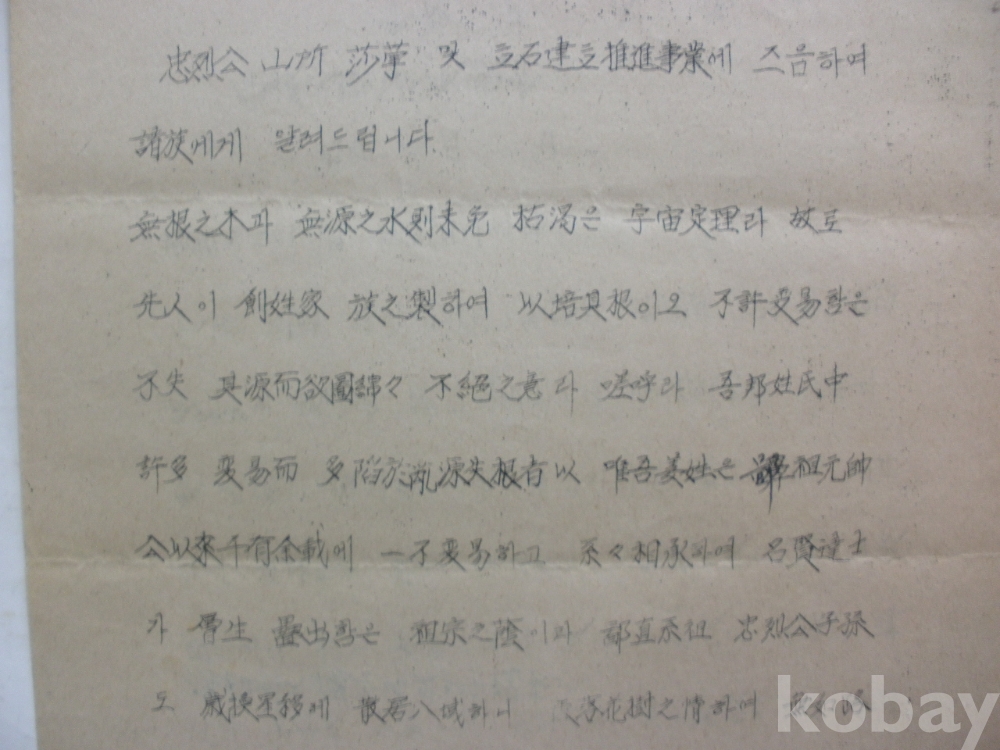 忠烈公 山所 莎草 및 立石建立推進事業에 즈음하여
諸族에게 알려드립니다.
無根之木과 無源之水則未免 枯渴은 宇宙定理라 故로
先人이 創姓家 族之製하여 以培其根이오 不許変易함은
不失 其源而欲圖綿々 不絕之意라 嗟呼라 吾邦姓氏中
許多 変易而 多陷於 源失根者以 唯吾姜姓은 鼻祖元帥
公以來千有余載에 一不変易하고 系々相承하여 名賢達士
가 層生 疊出함은 祖宗之蔭이라 鄙直系祖 忠烈公子孫
도 歲換星移에 散居八域하니 花樹之情하여
kobay